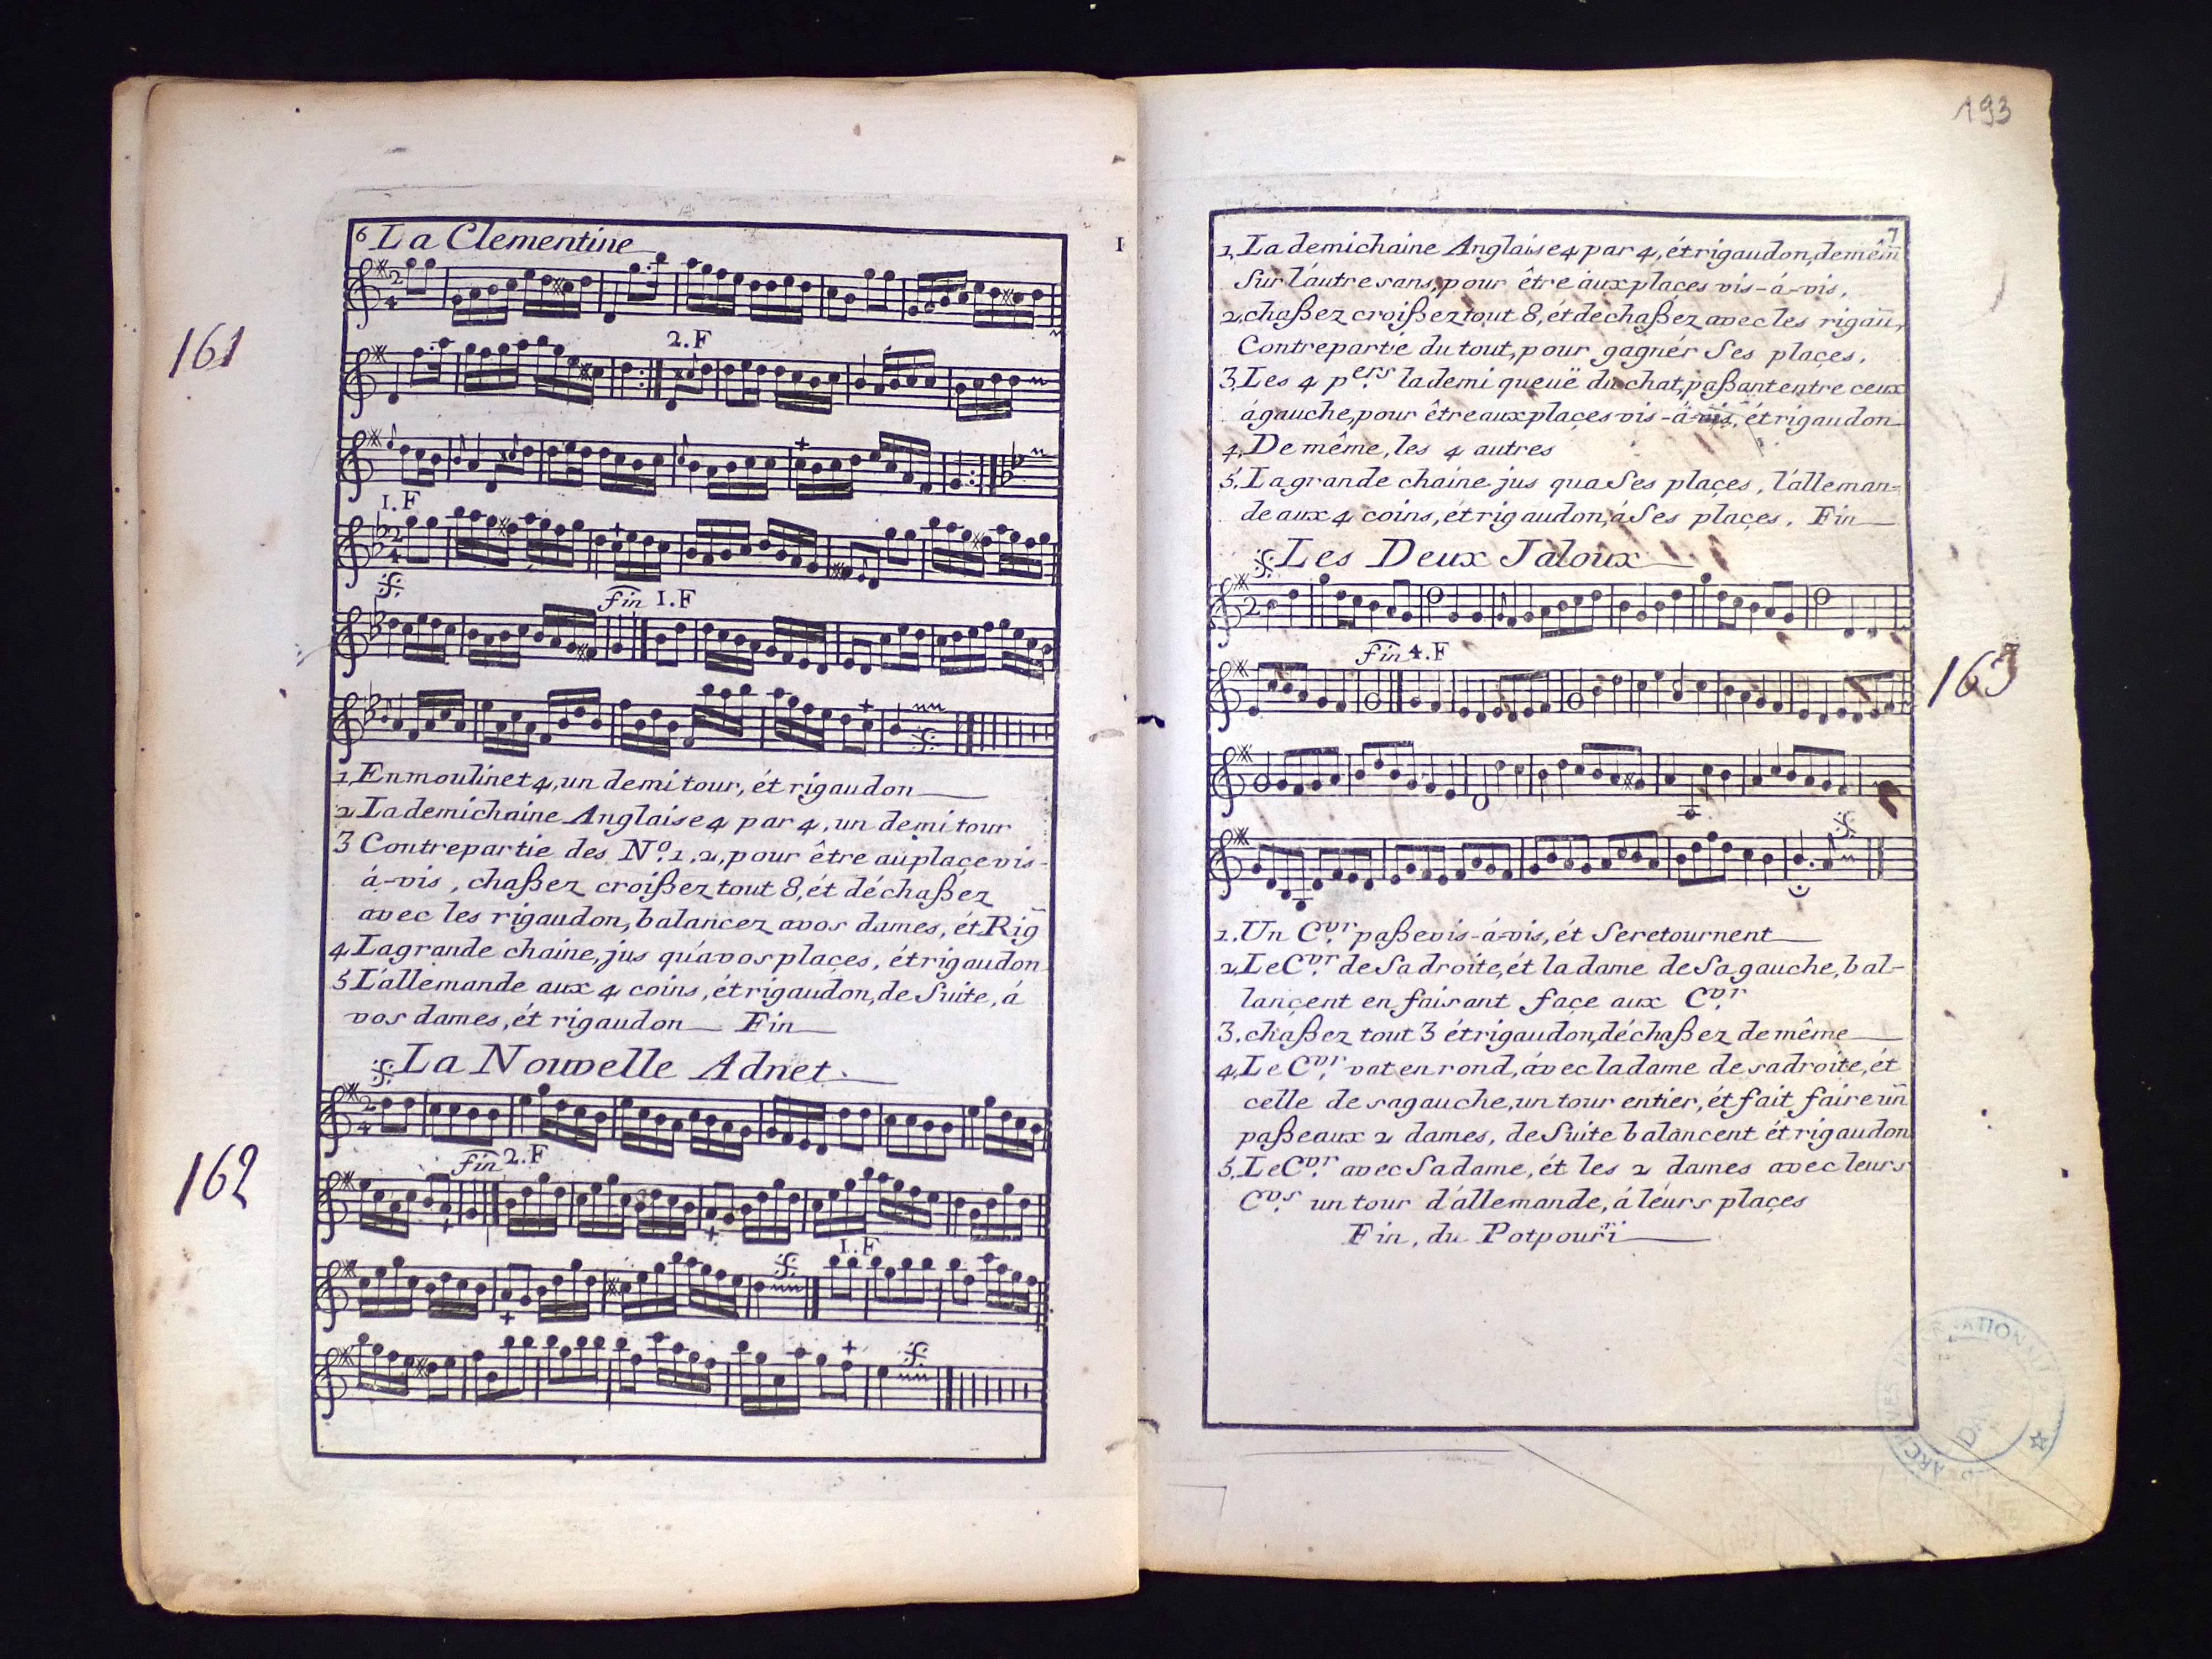 161
6 La Clementine
2.F
1.F
fin 1.F
1, En moulinet 4, un demi tour, ét rigaudon
2 La demi chaine Anglaise 4 par 4, un demi tour
3 Contrepartie des N.º 1, 2, pour être au plaçe vis-
á-vis, chaßez croißez tout 8, ét déchaßez
avec les rigaudon, balancez a vos dames, ét Rig̃
4, La grande chaine, jus qu'á vos plaçes, ét rigaudon
5 L'allemande aux 4 coins, ét rigaudon, de Suite, á
vos dames, ét rigaudon Fin
162
La Nouvelle Adnet.
fin 2.F
1.F
I
193
7
1, La demi chaine Anglaise 4 par 4, ét rigaudon, de mêm̃
Sur l'autre sans, pour être aux plaçes vis-á-vis,
2, chaßez croißez tout 8, ét déchaßez avec les rigau,
Contrepartie du tout, pour gagnér Ses plaçes,
3, Les 4 p.ers la demi queuë du chat, paßant entre ceux
á gauche, pour être aux plaçes vis-á-vis, ét rigaudon
4, De même, les 4 autres
5, La grande chaine jus qua Ses plaçes, l'alleman-
de aux 4 coins, ét rigaudon, á Ses plaçes, Fin
Les Deux Jaloux
fin 4.F
163
1, Un C.vr paße vis-á-vis, ét Se retournent
2, Le C.vr de Sa droite, ét la dame de Sa gauche, bal-
lançent en faisant façe aux C.vr
3, chaßez tout 3 ét rigaudon, déchaßez de même
4, Le C.vr vat en rond, ávec la dame de sa droite, ét
celle de sa gauche, un tour entier, ét fait faire uñ
paße aux 2 dames, de Suite balancent ét rigaudon
5, Le C.vr avec Sa dame, ét les 2 dames avec leurs
C.vs un tour d'állemande, á léurs plaçes
Fin, du Potpouri
ARCHIVES INTERNATIONALES